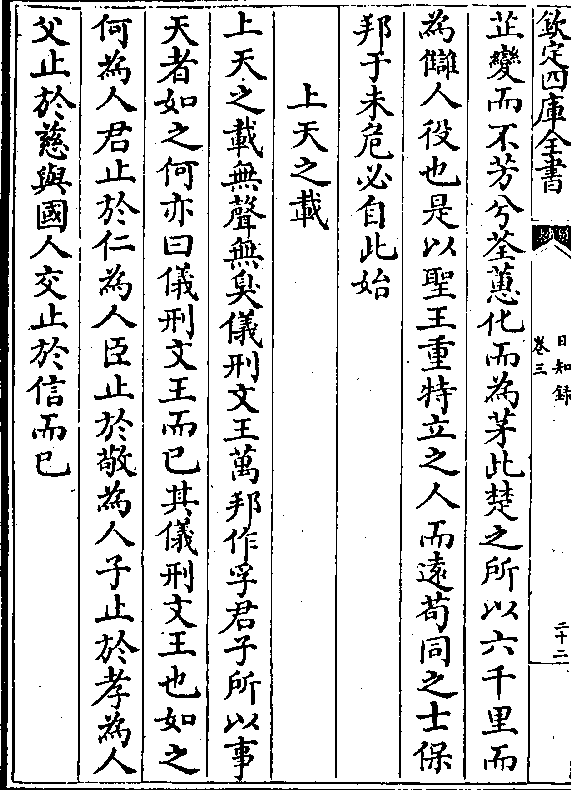 欽定四庫全書
日知錄
卷三
二十二
芷變而不芳兮荃蕙化而為茅此楚之所以六千里而
為讎人役也是以聖王重特立之人而遠苟同之士保
邦于未危必自此始
上天之載
上天之載無聲無臭儀刑文王萬邦作孚君子所以事
天者如之何亦曰儀刑文王而已其儀刑文王也如之
何為人君止於仁為人臣止於敬為人子止於孝為人
父止於慈與國人交止於信而已